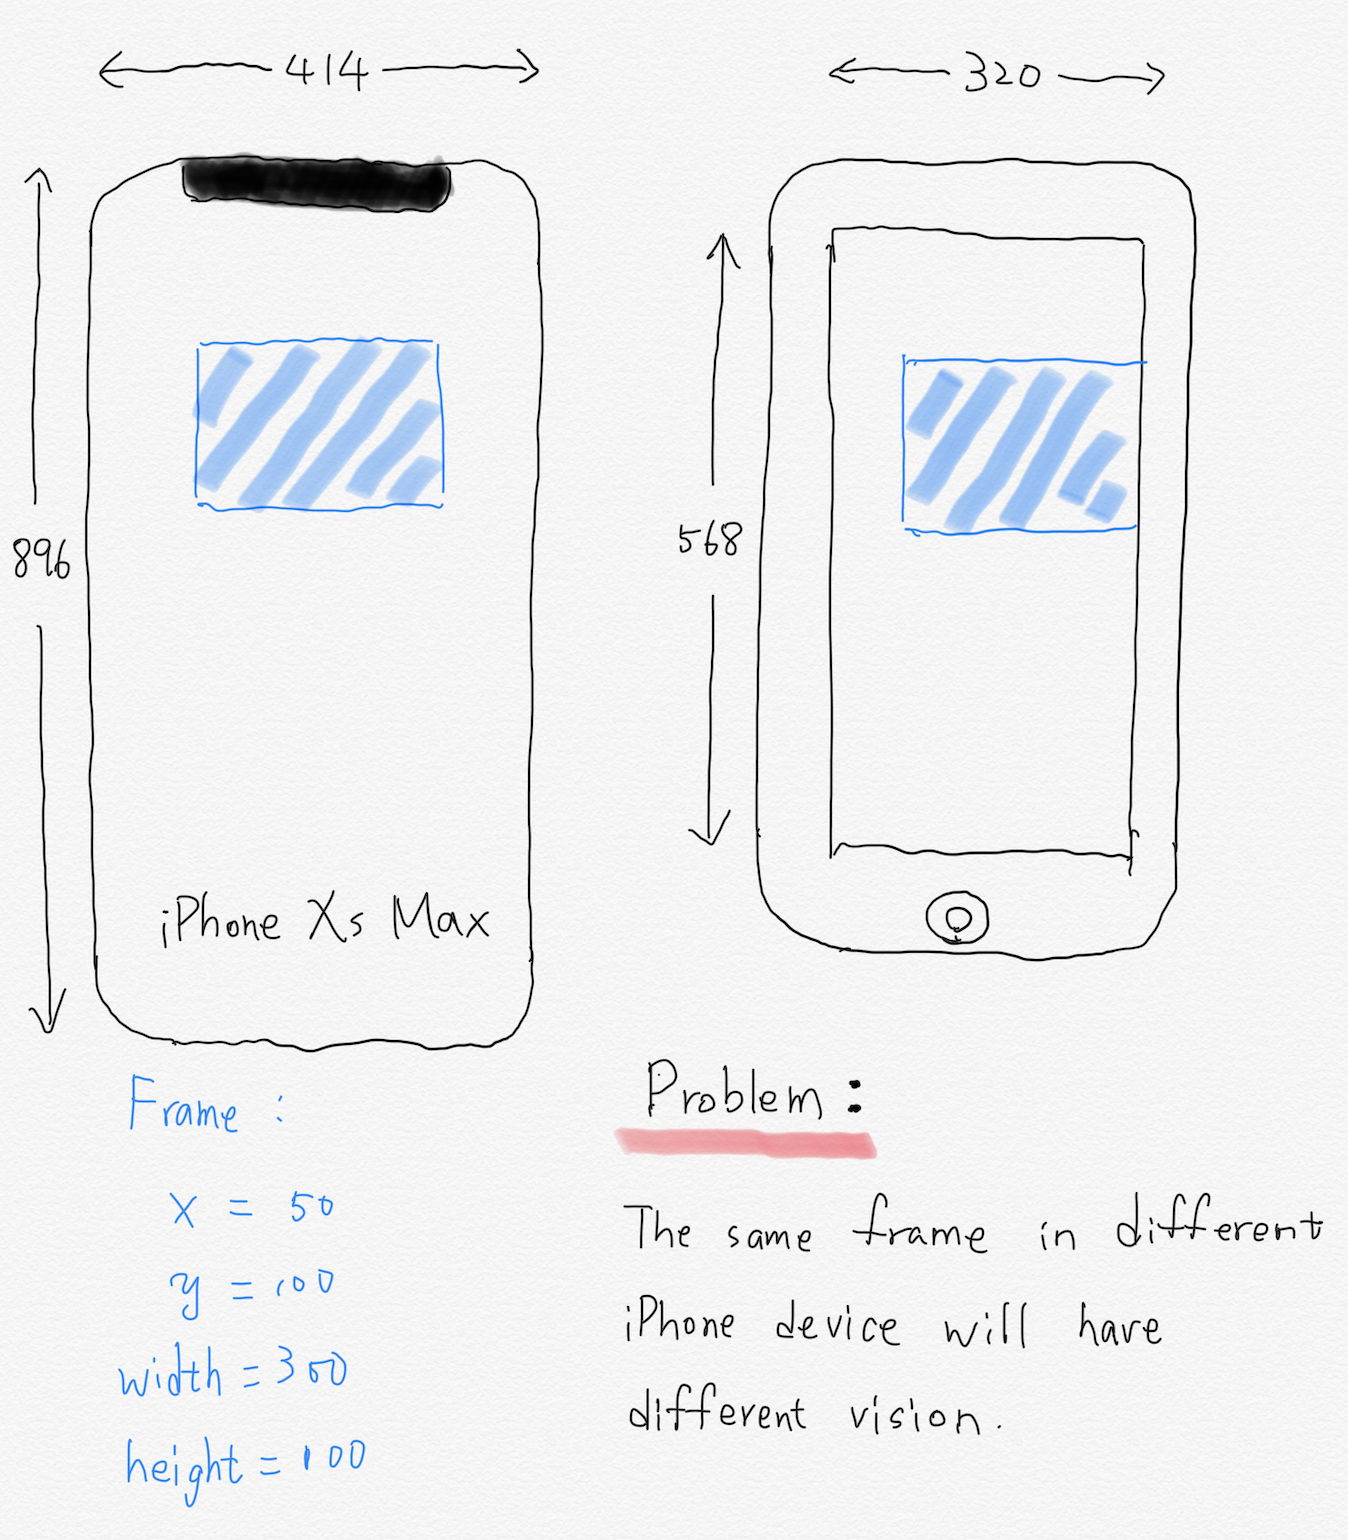 414
320
896
568
iPhone Xs Max
Frame :
x = 50
y = 100
width = 300
height = 100
Problem :
The same frame in different
iPhone device will have
different vision.